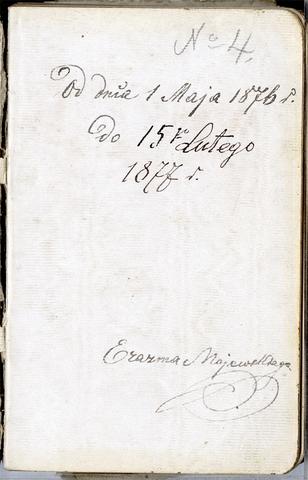 No 4.
Od dnia 1 Maja 1876 r.
do 15go Lutego
1877 r.
Erazma Majewskiego